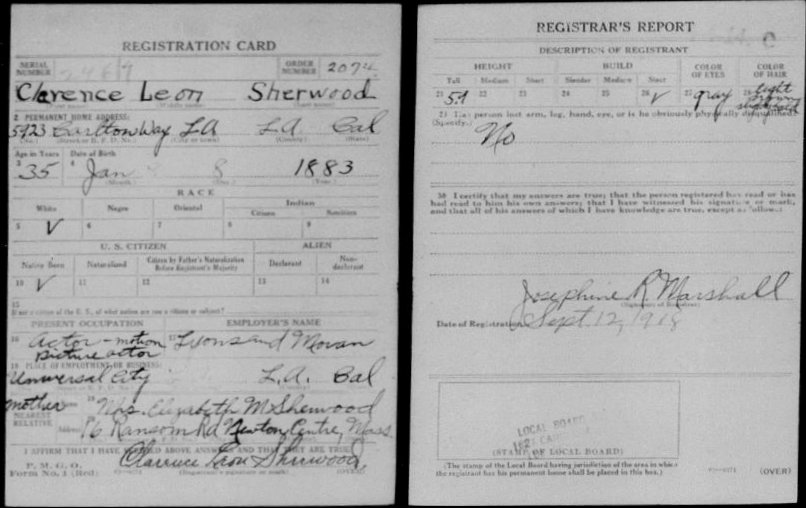 REGISTRATION CARD
SERIAL NUMBER 2469 ORDER NUMBER 2074
Clarence Leon Sherwood
(First name) (Middle name) (Last name)
2 PERMANENT HOME ADDRESS:
5923 Carlton Way LA L.A. Cal
(No.) (Street or R. F. D. No.) (City or town) (County) (State)
Age in Years Date of Birth
3 35 4 Jan 8 1883
(Month) (Day) (Year)
RACE
White Negro Oriental Indian
Citizen Noncitizen
5 V 6 7 8 9
U. S. CITIZEN ALIEN
Native Born Naturalized Citizen by Father's Naturalization Before Registrant's Majority Declarant Non-declarant
10 V 11 12 13 14
15
If not a citizen of the U. S., of what nation are you a citizen or subject?
PRESENT OCCUPATION EMPLOYER'S NAME
16 Actor - motion picture actor 17 Lyons and Moran
18 PLACE OF EMPLOYMENT OR BUSINESS:
Universal City L.A. Cal
mother 19 Mrs. Elizabeth M Sherwood
NEAREST RELATIVE
Address 20 16 Ransom Rd Newton Centre, Mass
I AFFIRM THAT I HAVE VERIFIED ABOVE ANSWERS AND THAT THEY ARE TRUE
P. M. G. O.
Form No. 1 (Red)
Clarence Leon Sherwood
(Registrant's signature or mark) (OVER)
REGISTRAR'S REPORT
C
DESCRIPTION OF REGISTRANT
HEIGHT BUILD COLOR OF EYES COLOR OF HAIR
Tall Medium Short Slender Medium Stout
21 5.9 22 23 24 25 26 V 27 gray 28 light brown slightly bald
29 Has person lost arm, leg, hand, eye, or is he obviously physically disqualified?
(Specify.) No
30 I certify that my answers are true; that the person registered has read or has
had read to him his own answers; that I have witnessed his signature or mark,
and that all of his answers of which I have knowledge are true, except as follows:
Josephine R Marshall
(Signature of Registrar)
Date of Registration Sept. 12, 1918
LOCAL BOARD
(STAMP OF LOCAL BOARD)
(The stamp of the Local Board having jurisdiction of the area in which
the registrant has his permanent home shall be placed in this box.)
(OVER)